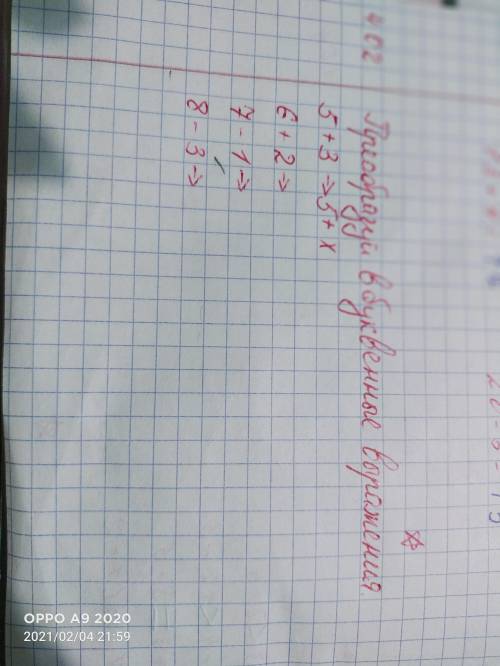 4.02
Приобразуй в буквенные выражения.
5 + 3 → 5 + x
6 + 2 →
7 - 1 →
8 - 3 →
OPPO A9 2020
2021/02/04 21:59